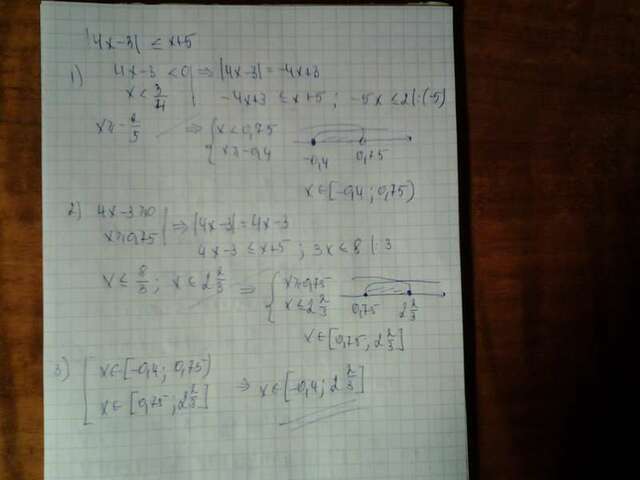 |4x-3| ≤ x+5
1) 4x-3 < 0 ⇒ |4x-3| = -4x+3
x < 3/4
-4x+3 ≤ x+5 ; -5x ≤ 2 |:(-5)
x ≥ -2/5 ⇒ { x < 0,75
x ≥ -0,4
-0,4 0,75
x ∈ [-0,4 ; 0,75)
2) 4x-3 ≥ 0 ⇒ |4x-3| = 4x-3
x ≥ 0,75
4x-3 ≤ x+5 ; 3x ≤ 8 |:3
x ≤ 8/3 ; x ≤ 2 2/3 ⇒ { x ≥ 0,75
x ≤ 2 2/3
0,75 2 2/3
x ∈ [0,75 ; 2 2/3]
3) [ x ∈ [-0,4 ; 0,75)
x ∈ [0,75 ; 2 2/3] ⇒ x ∈ [-0,4 ; 2 2/3]